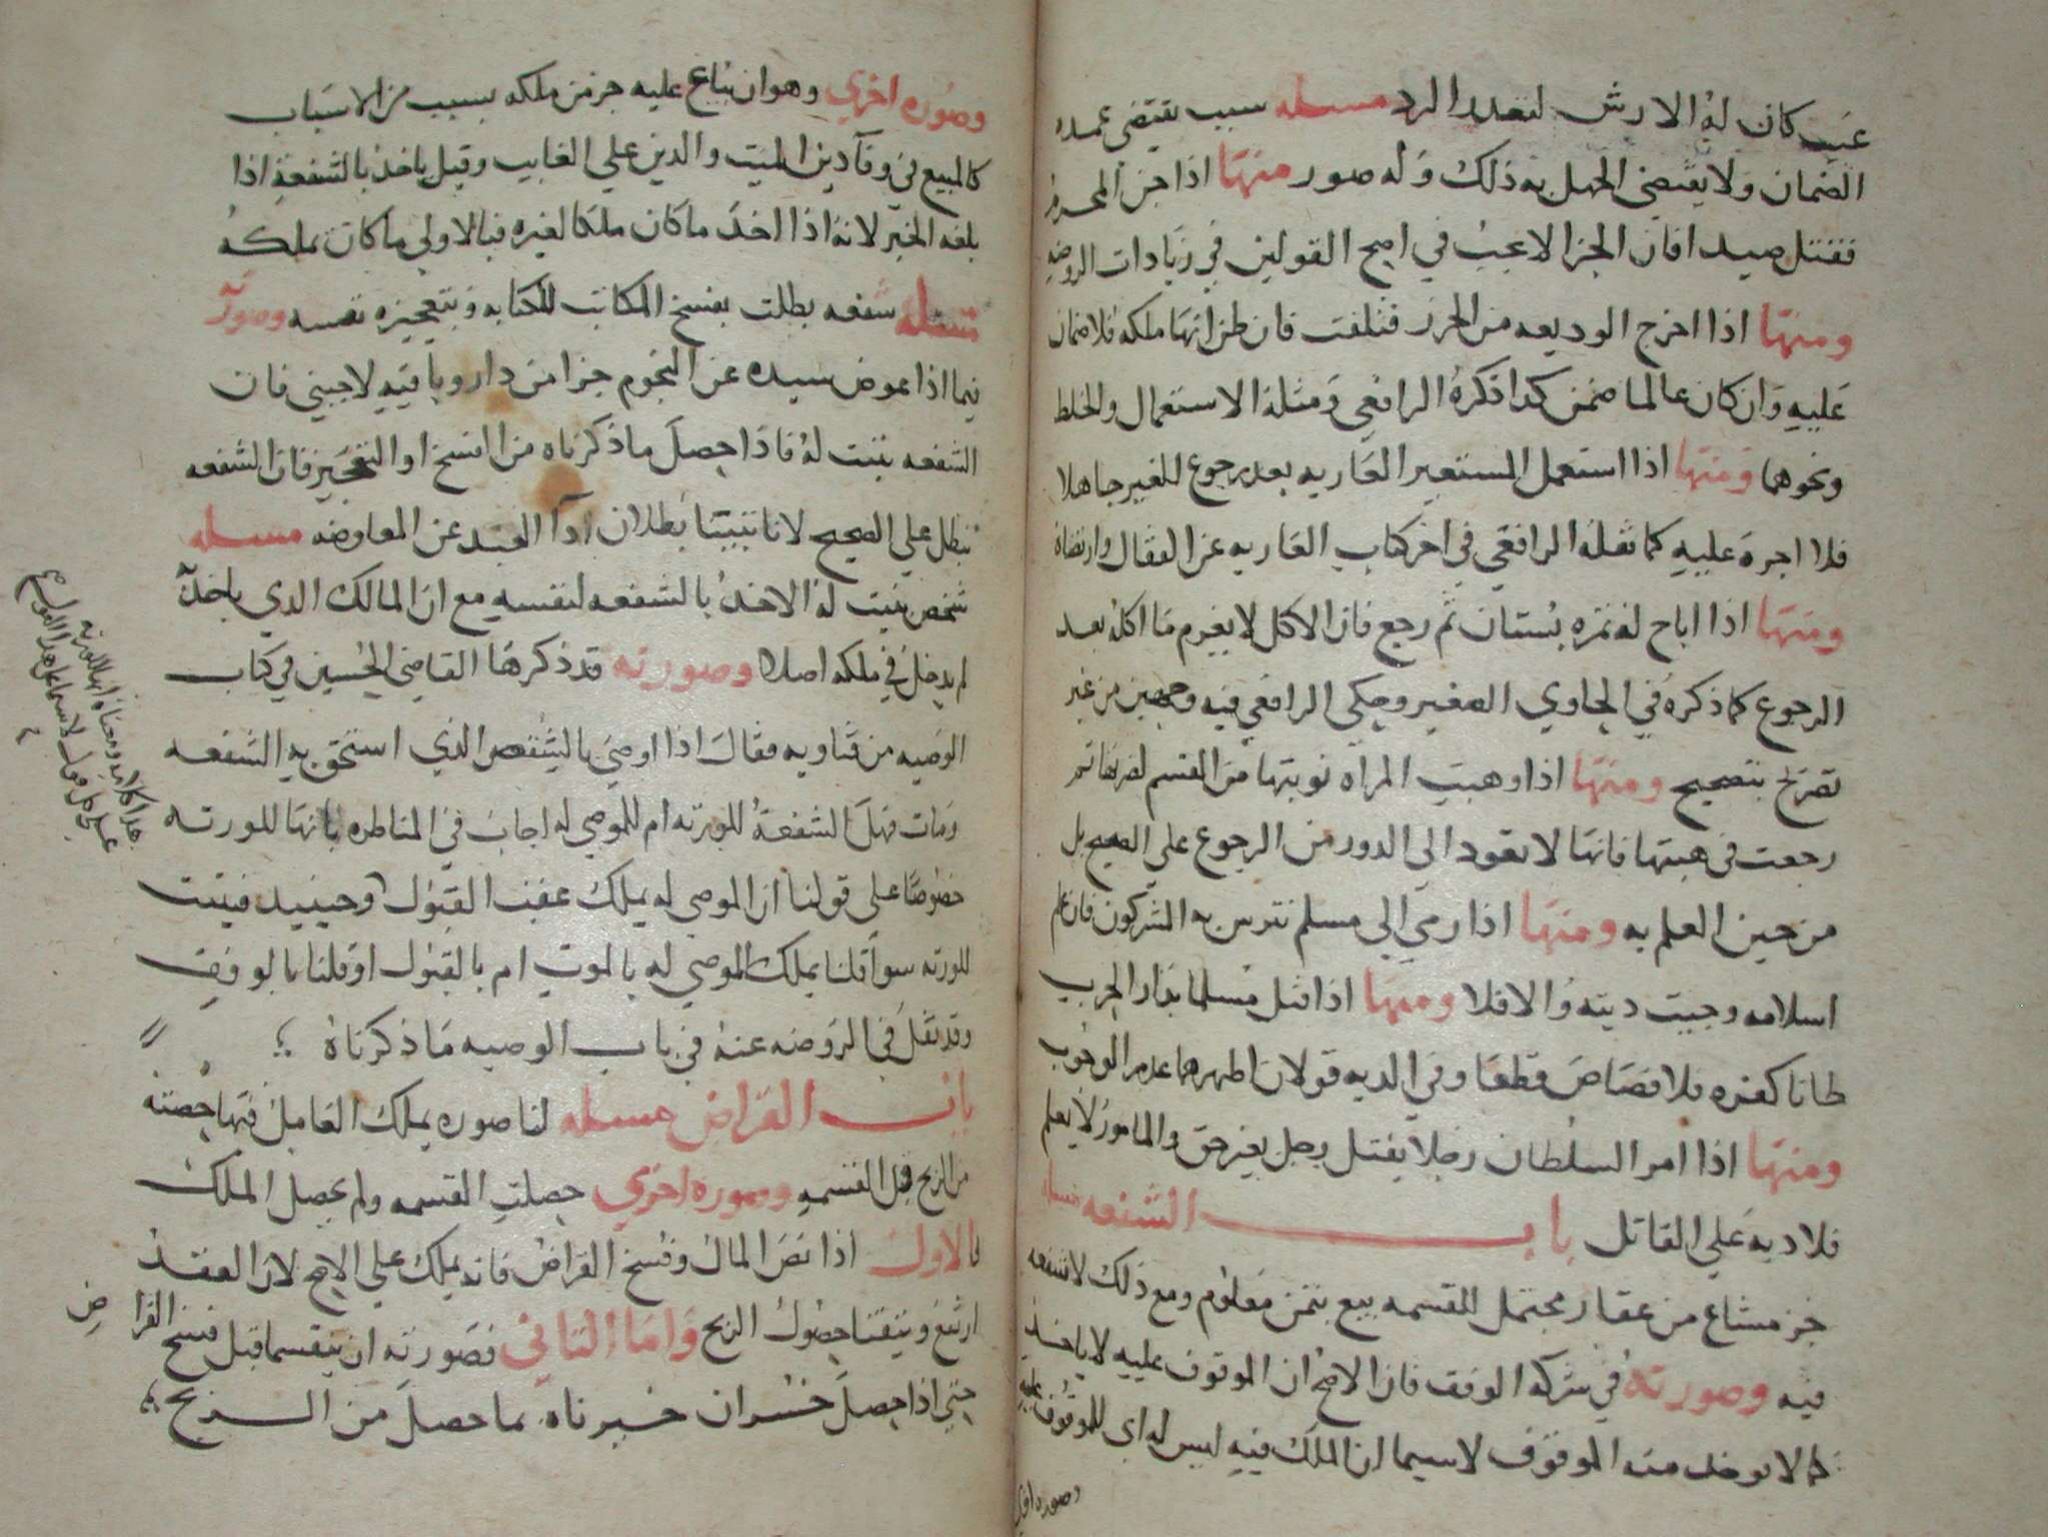 عيب كان له الارش لتعدد الرد مسله سبب يقتضي عمده
الضمان ولا يقتضي الجهل به ذلك وله صور منها اذا جن المحرم
فقتل صيدا فان الجزا لا يجب في اصح القولين في زيادات الروضه
ومنها اذا اخرج الوديعه من الحرز فتلفت فان ظن انها ملكه فلا ضمان
عليه وان كان عالما ضمن كذا ذكره الرافعي ومثله الاستعمال والخلط
ونحوهما ومنها اذا استعمل المستعير العاريه بعد رجوع المعير جاهلا
فلا اجرة عليه كما نقله الرافعي في اخر كتاب العاريه عن القفال وارتضاه
ومنها اذا اباح له ثمره بستان ثم رجع فان الاكل لا يغرم ما اكله بعد
الرجوع كما ذكره في الحاوي الصغير وحكى الرافعي فيه وجهين من غير
تصريح بتصحيح ومنها اذا وهبت المراه نوبتها من القسم لضرتها ثم
رجعت في هبتها فانها لا تعود الى الدور من الرجوع على الصحيح بل
من حين العلم به ومنها اذا رمي الي مسلم تترس به المشركون فان علم
اسلامه وجبت ديته والا فلا ومنها اذا قتل مسلما بدار الحرب
ظانا كفره فلا قصاص قطعا وفي الديه قولان اظهرهما عدم الوجوب
ومنها اذا امر السلطان رجلا بقتل رجل بغير حق والمامور لا يعلم
فلا ديه علي القاتل باب الشفعه مسله
جز مشاع من عقار محتمل للقسمه بيع بثمن معلوم ومع ذلك لا شفعه
فيه وصورته في شركه الوقف فان الاصح ان الموقوف عليه لا ياخذ
كما لا يوخذ منه الموقوف لاسيما ان الملك فيه ليس له اي للموقوف عليه
وصوره اخري
وصوره اخري وهو ان يباع عليه جز من ملكه بسبب من الاسباب
كالمبيع في وفا دين الميت والدين علي الغايب وقيل ياخذ بالشفعة اذا
بلغه الخبر لانه اذا اخذ ما كان ملكا لغيره فبالاولي ما كان بملكه
مسله شفعه بطلت بفسخ المكاتب للكتابه وبتعجيزه نفسه وصورته
فيما اذا عوض سيده عن النجوم جزا من دار وباقيه لاجنبي فان
الشفعه تثبت له فاذا حصل ما ذكرناه من الفسخ او التعجيز فان الشفعه
تبطل علي الصحيح لانا تبيننا بطلان ادا العبد عن المعاوضه مسله
شخص يثبت له الاخذ بالشفعه لنفسه مع ان المالك الذي ياخذ به
لم يدخل في ملكه اصلا وصورته قد ذكرها القاضي الحسين في كتاب
الوصيه من فتاويه فقال اذا اوصي بالشقص الذي استحق به الشفعه
ومات فهل الشفعة للورثه ام للموصي له اجاب في المناظره بانها للورثه
خصوصا علي قولنا ان الموصي له يملك عقب القبول وحينيد فيثبت
للورثه سوا قلنا يملك الموصي له بالموت ام بالقبول او قلنا بالوقف
وقد نقل في الروضه عنه في باب الوصيه ما ذكرناه
باب القراض مسله لنا صوره يملك العامل فيها حصته
من الربح قبل القسمه وصوره اخري حصلت القسمه ولم يحصل الملك
فالاول اذا نض المال وفسخ القراض فانه يملك علي الاصح لان العقد
ارتفع وتيقنا حصول الربح واما الثاني فصورته ان يقتسما قبل فسخ القراض
حتي اذا حصل خسران جبرناه بما حصل من الربح